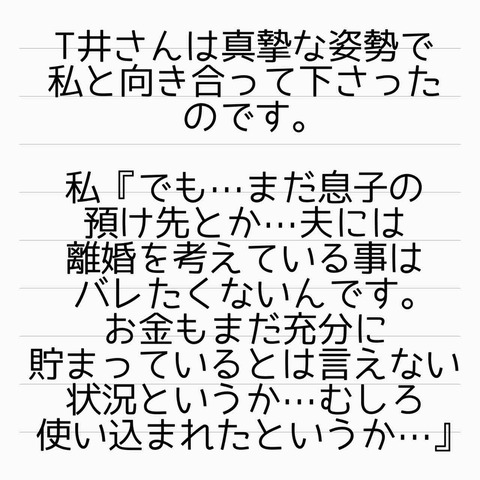 T井さんは真摯な姿勢で
私と向き合って下さった
のです。
私『でも…まだ息子の
預け先とか…夫には
離婚を考えている事は
バレたくないんです。
お金もまだ充分に
貯まっているとは言えない
状況というか…むしろ
使い込まれたというか…』